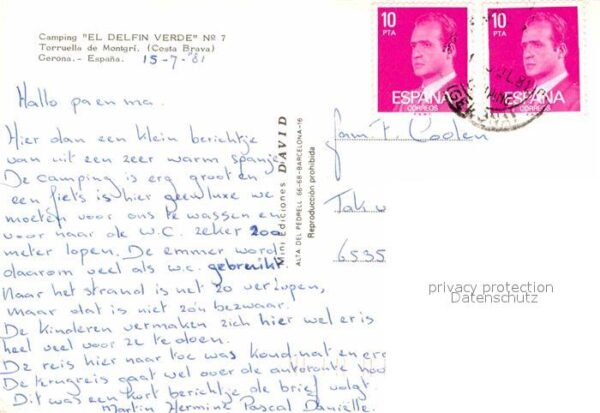 Camping "EL DELFIN VERDE" Nº 7
Torruella de Montgri. (Costa Brava)
Gerona.- España. 15-7-'81
Hallo pa en ma.
Hier dan een klein berichtje
van uit een zeer warm spanje
De camping is erg groot en
een fiets is hier geen luxe we
moeten voor ons te wassen en
voor naar de W.C. zeker 200
meter lopen. De emmer word
daarom veel als w.c. gebruikt.
Naar het strand is net 20 ver lopen,
maar dat is niet zó'n bezwaar.
De kinderen vermaken zich hier wel er is
heel veel voor ze te doen.
De reis hier naar toe was koud. nat en
De terugreis gaat wel over de autoroute
Dit was een kort berichtje de brief volgt.
Martin Hermine Pascal Danielle.
Mini Ediciones DAVID
ALTA DEL PEDRELL 66-68-BARCELONA-16
Reproducción prohibida
10
PTA
ESPAÑA
CORREOS
10
PTA
ESPAÑA
CORREOS
Fam
6535
privacy protection
Datenschutz